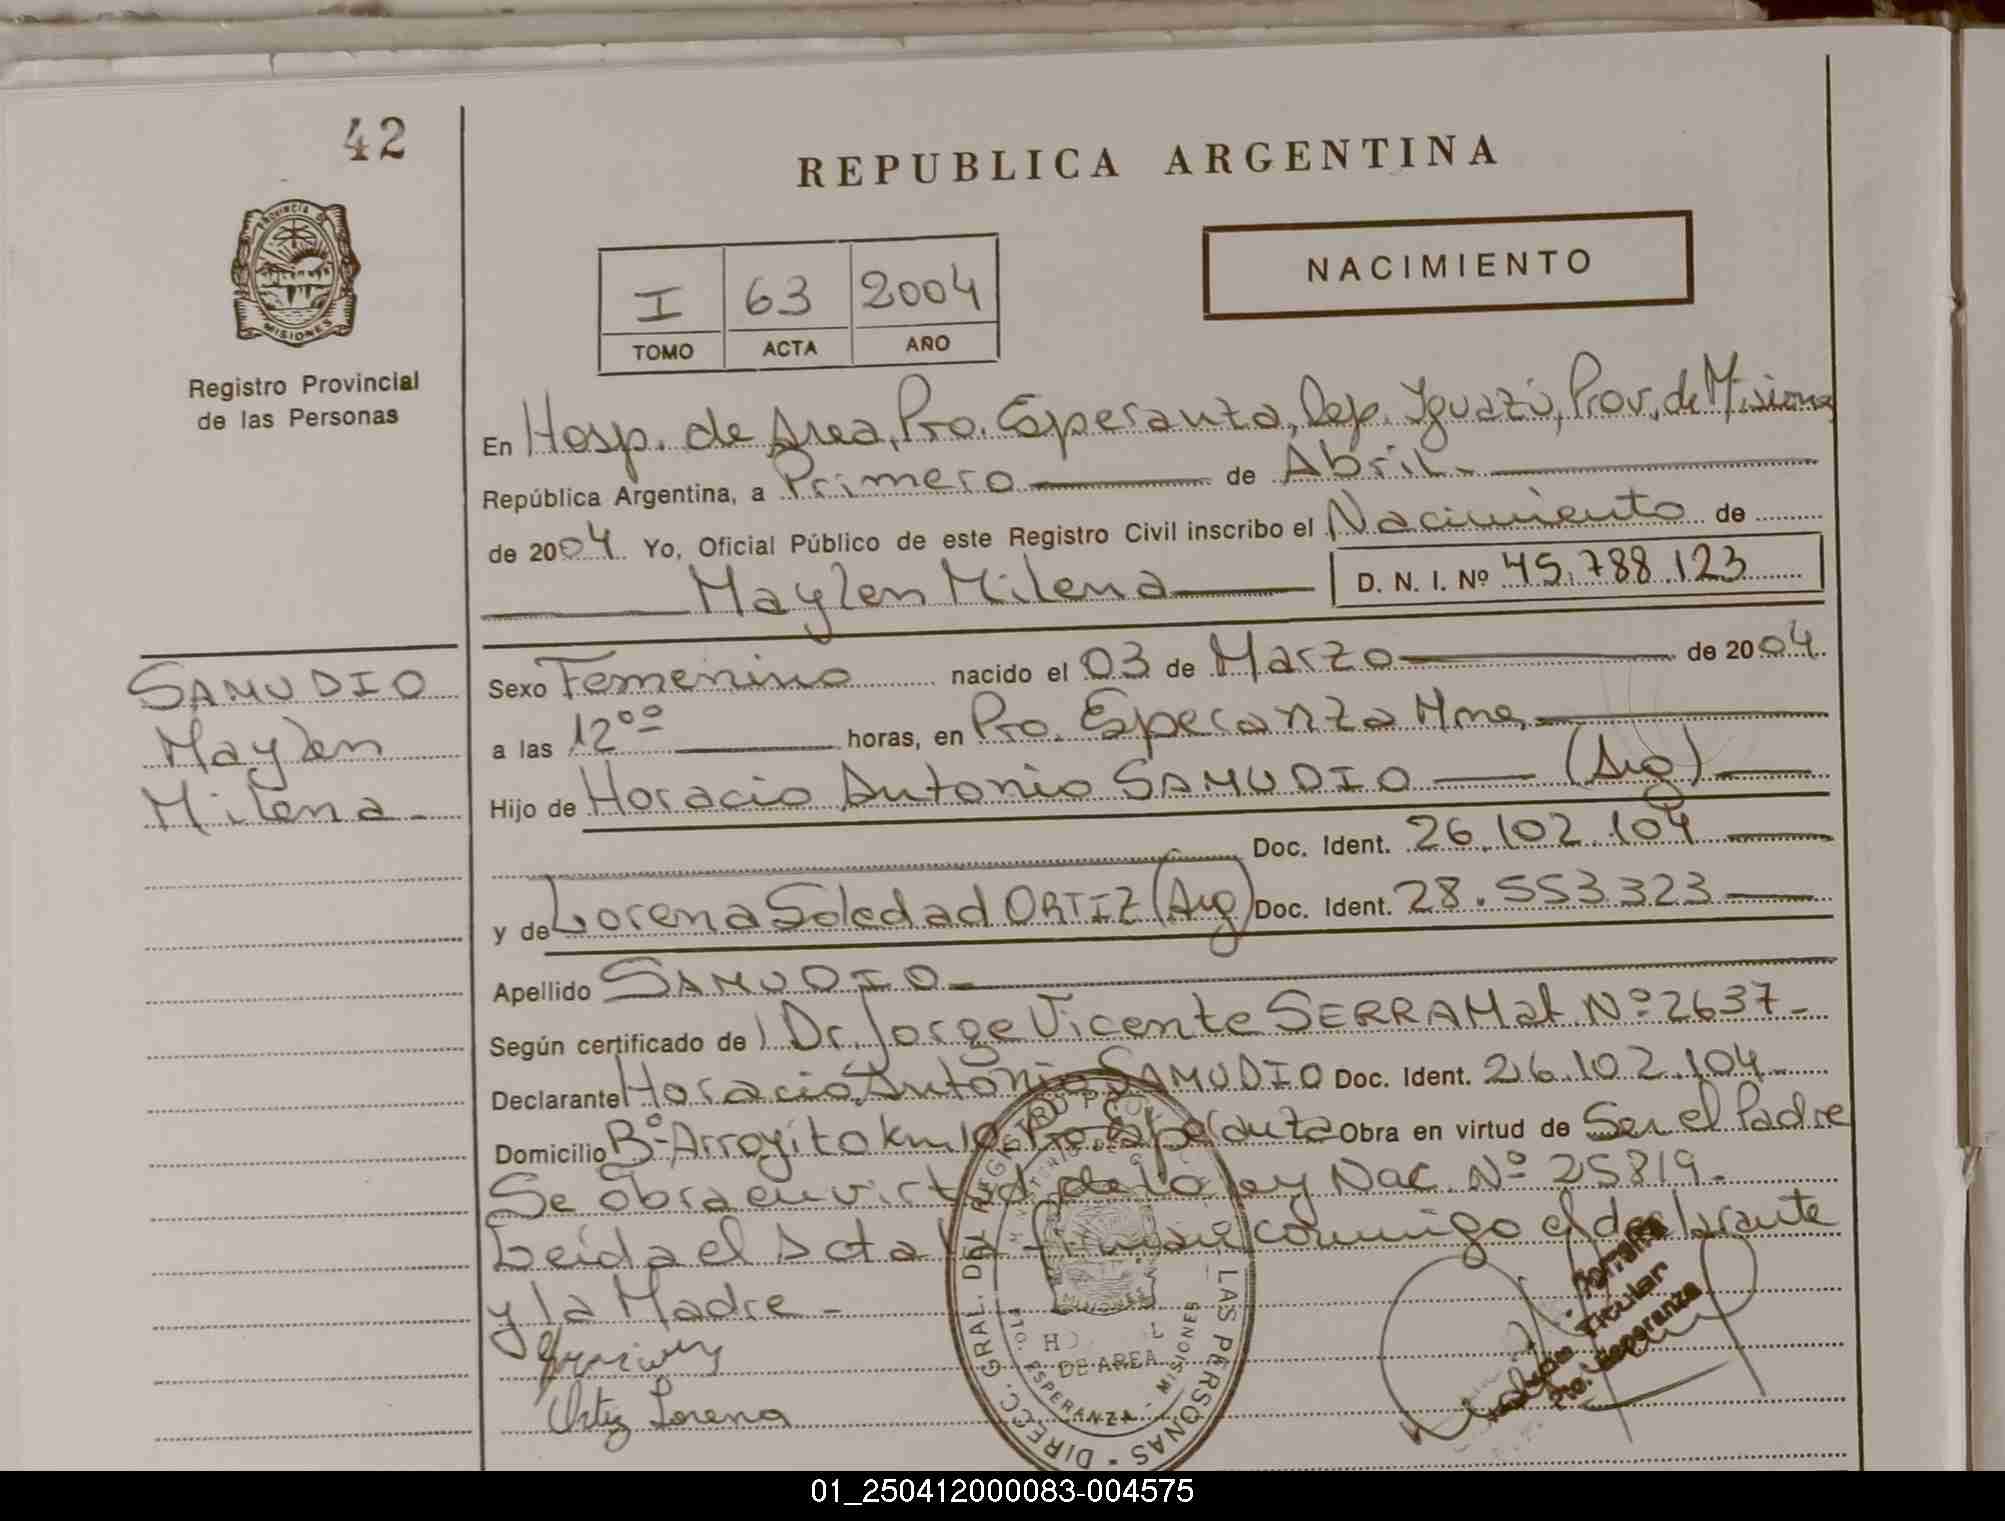 42
REPUBLICA ARGENTINA
PROVINCIA DE
MISIONES
Registro Provincial
de las Personas
I 63 2004
TOMO ACTA AÑO
NACIMIENTO
En Hosp. de Area, Pto. Esperanza, Dep. Iguazú, Prov. de Misiones
República Argentina, a Primero de Abril.-
de 2004 Yo, Oficial Público de este Registro Civil inscribo el Nacimiento de
Maylen Milena D. N. I. Nº 45.788.123
SAMUDIO
Maylen
Milena -
Sexo Femenino nacido el 03 de Marzo de 2004
a las 12⁰⁰ horas, en Pto. Esperanza Mnes
Hijo de Horacio Antonio SAMUDIO (Arg)
Doc. Ident. 26.102.104
y de Lorena Soledad ORTIZ (Arg) Doc. Ident. 28.553.323
Apellido SAMUDIO -
Según certificado de Dr. Jorge Vicente SERRA Mat. Nº 2637-
Declarante Horacio Antonio SAMUDIO Doc. Ident. 26.102.104
Domicilio Bº Arroyito km 10 Pto. Esperanza Obra en virtud de Ser el Padre
Se obra en virtud de la Ley Nac. Nº 25819.
Leída el Acta la firman conmigo el declarante
y la Madre -
Ortiz Lorena
DIRECC. GRAL. DEL REGISTRO LAS PERSONAS
MISIONES
DE AREA
ESPERANZA - MISIONES
Titular
Pto. Esperanza
01_250412000083-004575